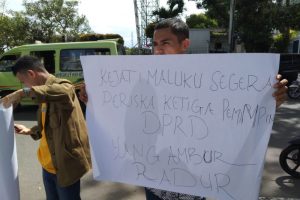 KEJATI MALUKU SEGERA
PERIKSA KETIGA PEMIMPIN
DPRD
YANG AMBUR
RADUR